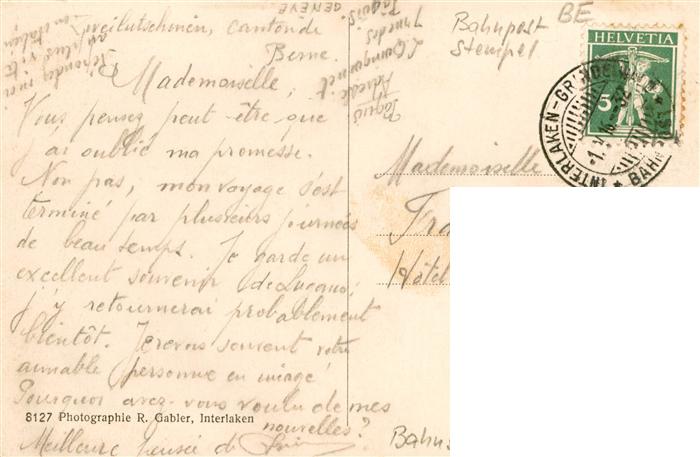 Zweilutschinen, canton de
Berne.
Mademoiselle,
Vous pensez peut-être que
j'ai oublié ma promesse.
Non pas, mon voyage s'est
terminé par plusieurs journées
de beau temps. Je garde un
excellent souvenir de Lugano;
j'y retournerai probablement
bientôt. Je revois souvent votre
aimable personne en imagé
Pourquoi avez-vous voulu de mes
nouvelles?
Meilleure pensée de
8127 Photographie R. Gabler, Interlaken
GENEVE
Pâquis
Adresse
Répondez moi
au plus vite
en italien
Bahnpost
Stempel
BE
HELVETIA
5
INTERLAKEN-GRINDELWALD
BAHN
Mademoiselle
Fra
Hôtel
Bahns